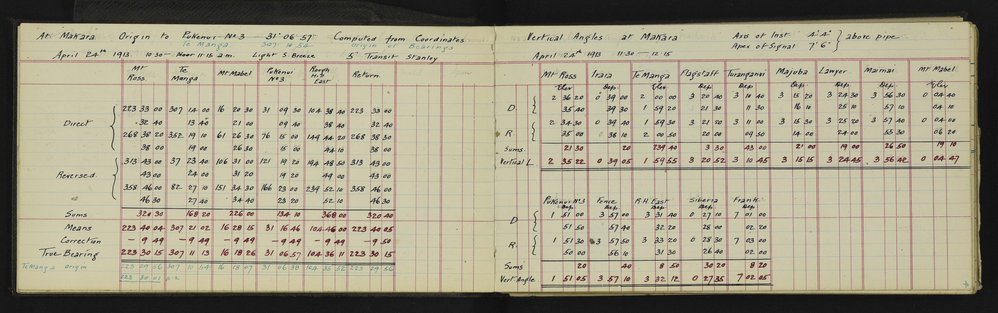 At Makara Origin to Pukenui No 3 — 31·06·57 Computed from Coordinates
Te Manga 307 10 54 Origin of Bearings
April 24th 1913. 10·30 – Noon 11·15 a.m. Light S. Breeze 5" Transit Stanley
Mt Ross Te Manga Mt Mabel Pukenui No 3 Rough Hill East Return
223 33 00 307 14 00 16 20 30 31 09 30 104 38 40 223 33 00
32 40 13 40 21 00 09 40 38 40 32 40
Direct
268 38 20 352 19 10 61 26 30 76 15 00 149 44 20 268 38 30
38 00 19 00 26 30 15 00 44 10 38 00
313 43 00 37 23 40 106 31 00 121 19 20 194 48 50 313 43 00
43 00 24 00 31 20 19 20 49 00 43 00
Reversed
358 46 00 82 27 10 151 34 30 166 23 00 239 52 10 358 46 00
46 30 27 40 34 40 23 20 52 10 46 30
Sums 320 30 168 20 226 00 134 10 368 00 320 40
Means 223 40 04 307 21 02 16 28 15 31 16 46 104 46 00 223 40 05
Correction – 9 49 – 9 49 – 9 49 – 9 49 – 9 49 – 9 50
True Bearing 223 30 15 307 11 13 16 18 26 31 06 57 104 36 11 223 30 15
Te Manga origin 223 29 56 307 10 54 16 18 07 31 06 38 104 35 52 223 29 56
Vertical Angles at Makara Axis of Inst. 4' 4" above pipe
Apex of Signal 7' 6"
April 24th 1913 11·30 – 12·15
Mt Ross Irara Te Manga Flagstaff Turanganui Majuba Lawyer Maimai Mt Mabel
D 2 36 20 0 39 00 2 00 00 3 20 40 3 10 40 3 15 20 3 24 30 3 56 30 0 04 40
35 40 39 30 1 59 20 21 30 11 30 16 10 25 10 57 10 04 10
R 2 34 30 0 39 40 1 59 30 3 21 20 3 11 00 3 15 30 3 25 20 3 57 40 0 04 00
35 00 38 10 2 00 50 20 00 09 50 14 00 24 00 55 30 06 20
Sums 21 30 20 239 40 3 30 43 00 21 00 19 00 26 50 19 10
Vertical L 2 35 22 0 39 05 1 59 55 3 20 52 3 10 45 3 15 15 3 24 45 3 56 42 0 04 47
Pukenui No 3 R H East Siberia Frank
D 1 51 00 3 57 00 3 31 40 0 27 10 7 01 00
51 50 57 40 32 20 28 00 02 20
R 1 51 30 3 57 50 3 33 20 0 28 30 7 03 00
50 00 56 10 31 30 26 40 02 00
Sums 20 40 8 50 30 20 8 20
Vert. Angle 1 51 05 3 57 10 3 32 12 0 27 35 7 02 05